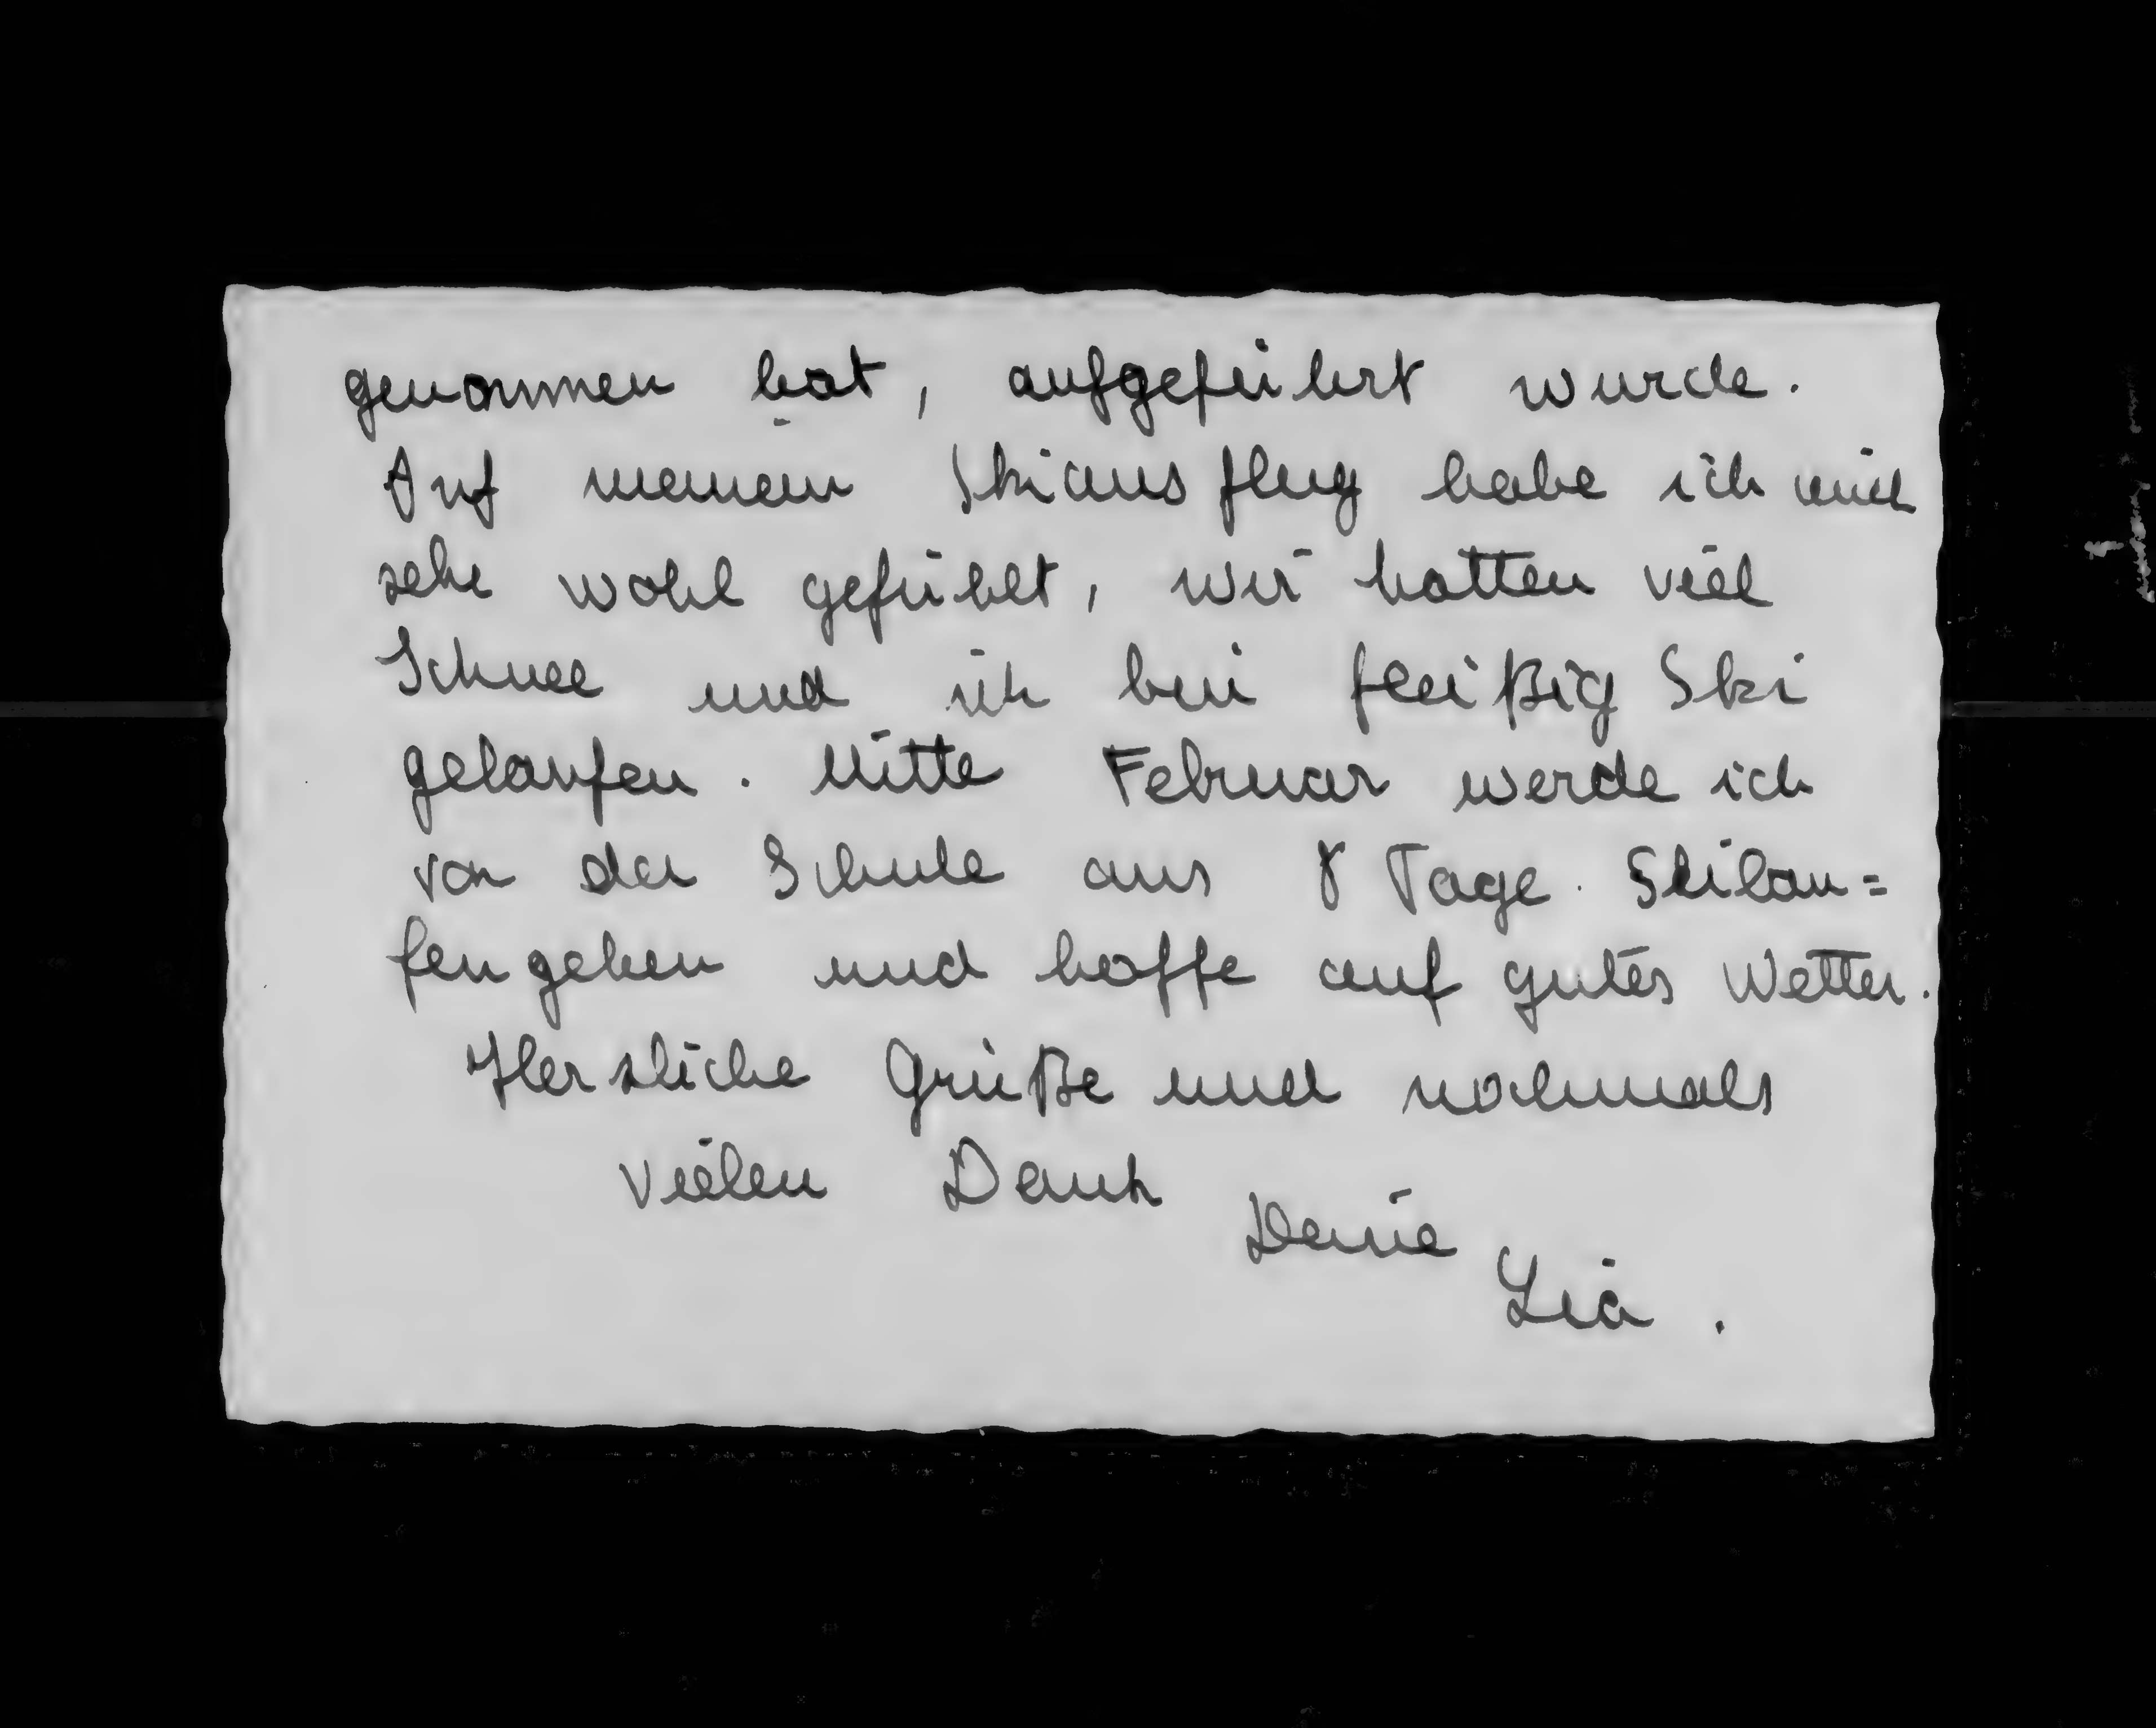 genommen hat, aufgeführt wurde.
Auf meinem Skiausflug habe ich mich
sehr wohl gefühlt, wir hatten viel
Schnee und ich bin fleißig Ski
gelaufen. Mitte Februar werde ich
von der Schule aus 8 Tage Skilau=
fen gehen und hoffe auf gutes Wetter.
Herzliche Grüße und nochmals
vielen Dank
Deine
Lia.